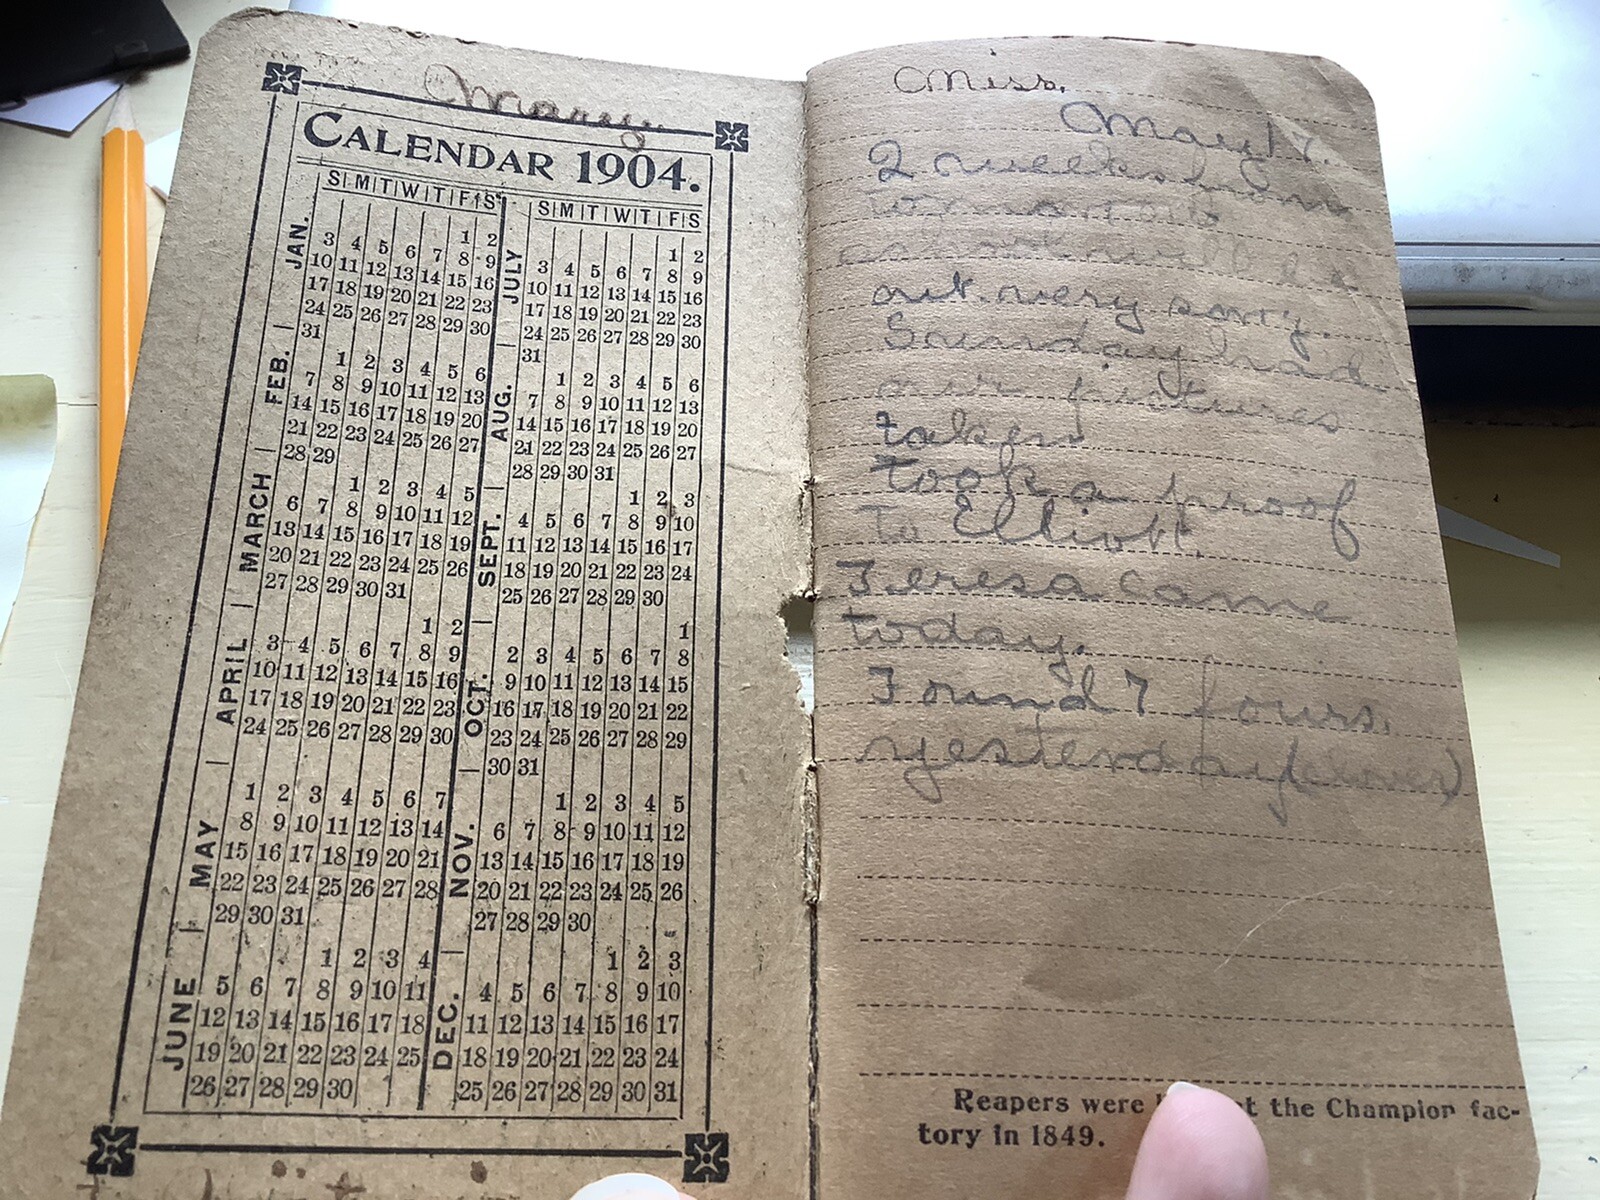 Mary.
CALENDAR 1904.
S M T W T F S
JAN.
1 2
3 4 5 6 7 8 9
10 11 12 13 14 15 16
17 18 19 20 21 22 23
24 25 26 27 28 29 30
31
FEB.
1 2 3 4 5 6
7 8 9 10 11 12 13
14 15 16 17 18 19 20
21 22 23 24 25 26 27
28 29
MARCH
1 2 3 4 5
6 7 8 9 10 11 12
13 14 15 16 17 18 19
20 21 22 23 24 25 26
27 28 29 30 31
APRIL
1 2
3 4 5 6 7 8 9
10 11 12 13 14 15 16
17 18 19 20 21 22 23
24 25 26 27 28 29 30
MAY
1 2 3 4 5 6 7
8 9 10 11 12 13 14
15 16 17 18 19 20 21
22 23 24 25 26 27 28
29 30 31
JUNE
1 2 3 4
5 6 7 8 9 10 11
12 13 14 15 16 17 18
19 20 21 22 23 24 25
26 27 28 29 30
S M T W T F S
JULY
1 2
3 4 5 6 7 8 9
10 11 12 13 14 15 16
17 18 19 20 21 22 23
24 25 26 27 28 29 30
31
AUG.
1 2 3 4 5 6
7 8 9 10 11 12 13
14 15 16 17 18 19 20
21 22 23 24 25 26 27
28 29 30 31
SEPT.
1 2 3
4 5 6 7 8 9 10
11 12 13 14 15 16 17
18 19 20 21 22 23 24
25 26 27 28 29 30
OCT.
1
2 3 4 5 6 7 8
9 10 11 12 13 14 15
16 17 18 19 20 21 22
23 24 25 26 27 28 29
30 31
NOV.
1 2 3 4 5
6 7 8 9 10 11 12
13 14 15 16 17 18 19
20 21 22 23 24 25 26
27 28 29 30
DEC.
1 2 3
4 5 6 7 8 9 10
11 12 13 14 15 16 17
18 19 20 21 22 23 24
25 26 27 28 29 30 31
Miss.
May 17.
2 weeks from
school will be
out. very sorry.
Sunday had
our pictures
taken
took a proof
to Elliott.
Teresa came
today.
Found 7 fours.
yesterday (clover)
Reapers were at the Champion fac-
tory in 1849.